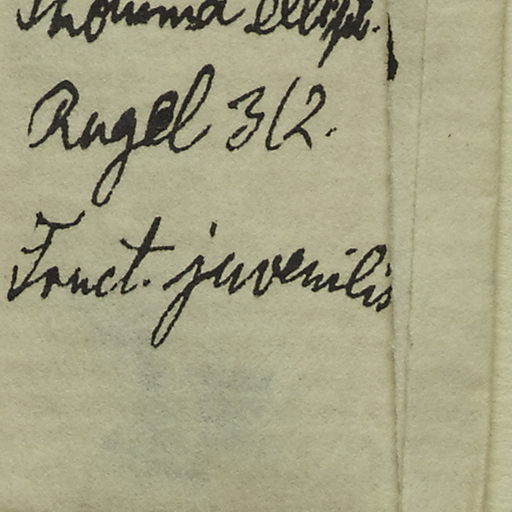 Thouinia ellipt.
Rugel 312.
Fruct. juvenilis